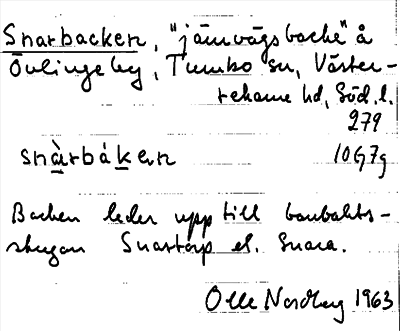 Snarbacken, "järnvägsbacke" å
Övlingeby, Tumbo sn, Väster-
rekarne hd, Söd. l.
279
snàrbàkɐn 10G7g
Backen leder upp till banvakts-
stugan Snartorp el. Snara.
Olle Nordberg 1963